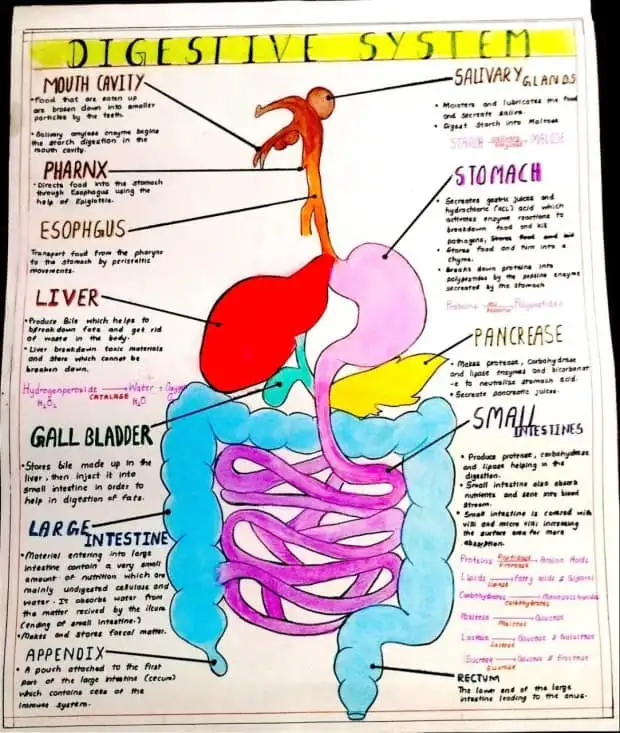 DIGESTIVE SYSTEM
MOUTH CAVITY
• Food that are eaten up
are broken down into smaller
particles by the teeth.
• Salivary amylase enzyme begins
the starch digestion in the
mouth cavity.
PHARNX
• Directs food into the stomach
through Esophagus using the
help of Epiglottis.
ESOPHGUS
Transport food from the pharynx
to the stomach by peristaltic
movements.
LIVER
• Produce Bile which helps to
breakdown fats and get rid
of waste in the body.
• Liver breakdown toxic materials
and store which cannot be
broken down.
Hydrogenperoxide → Water + Oxygen
CATALASE
H₂O₂ H₂O O₂
GALL BLADDER
• Stores bile made up in the
liver, then inject it into
small intestine in order to
help in digestion of fats.
LARGE
INTESTINE
• Material entering into large
intestine contain a very small
amount of nutrition which are
mainly undigested cellulose and
water. It absorbs water from
the matter recived by the ileum
(ending of small intestine.)
• Makes and stores faecal matter.
APPENDIX
• A pouch attached to the first
part of the large intestine (cecum)
which contains cells of the
immune system.
SALIVARY GLANDS
• Moistens and lubricates the food
and secreate saliva.
• Digest Starch into Maltose
STARCH → MALTOSE
STOMACH
• Secreates gastric juices and
hydrochloric (HCL) acid which
activates enzyme reactions to
breakdown food and kill
pathogens,
• Stores food and turn into a
chyme.
• Breaks down proteins into
polypeptides by the pepsine enzyme
secreated by the stomach
Proteins → Polypeptides
PANCREASE
• Makes protease, carbohydrase
and lipase enzymes and bicarbonat
-e to neutralise stomach acid.
• Secreate pancreatic juices.
SMALL
INTESTINES
• Produce protease, carbohydrase
and lipase helping in the
digestion.
• Small intestine also absorb
nutrients and sent into blood
stream.
• Small intestine is covered with
villi and micro villi increasing
the surface area for more
absorption.
Proteins → Amino Acids
Lipids → Fatty acids & Glycerol
Lipase
Carbohydrates → Monosaccharides
Maltose → Glucose
Maltase
Lactose → Glucose & Galactose
Lactase
Sucrose → Glucose & Fructose
Sucrase
RECTUM
The lower end of the large
intestine leading to the anus.